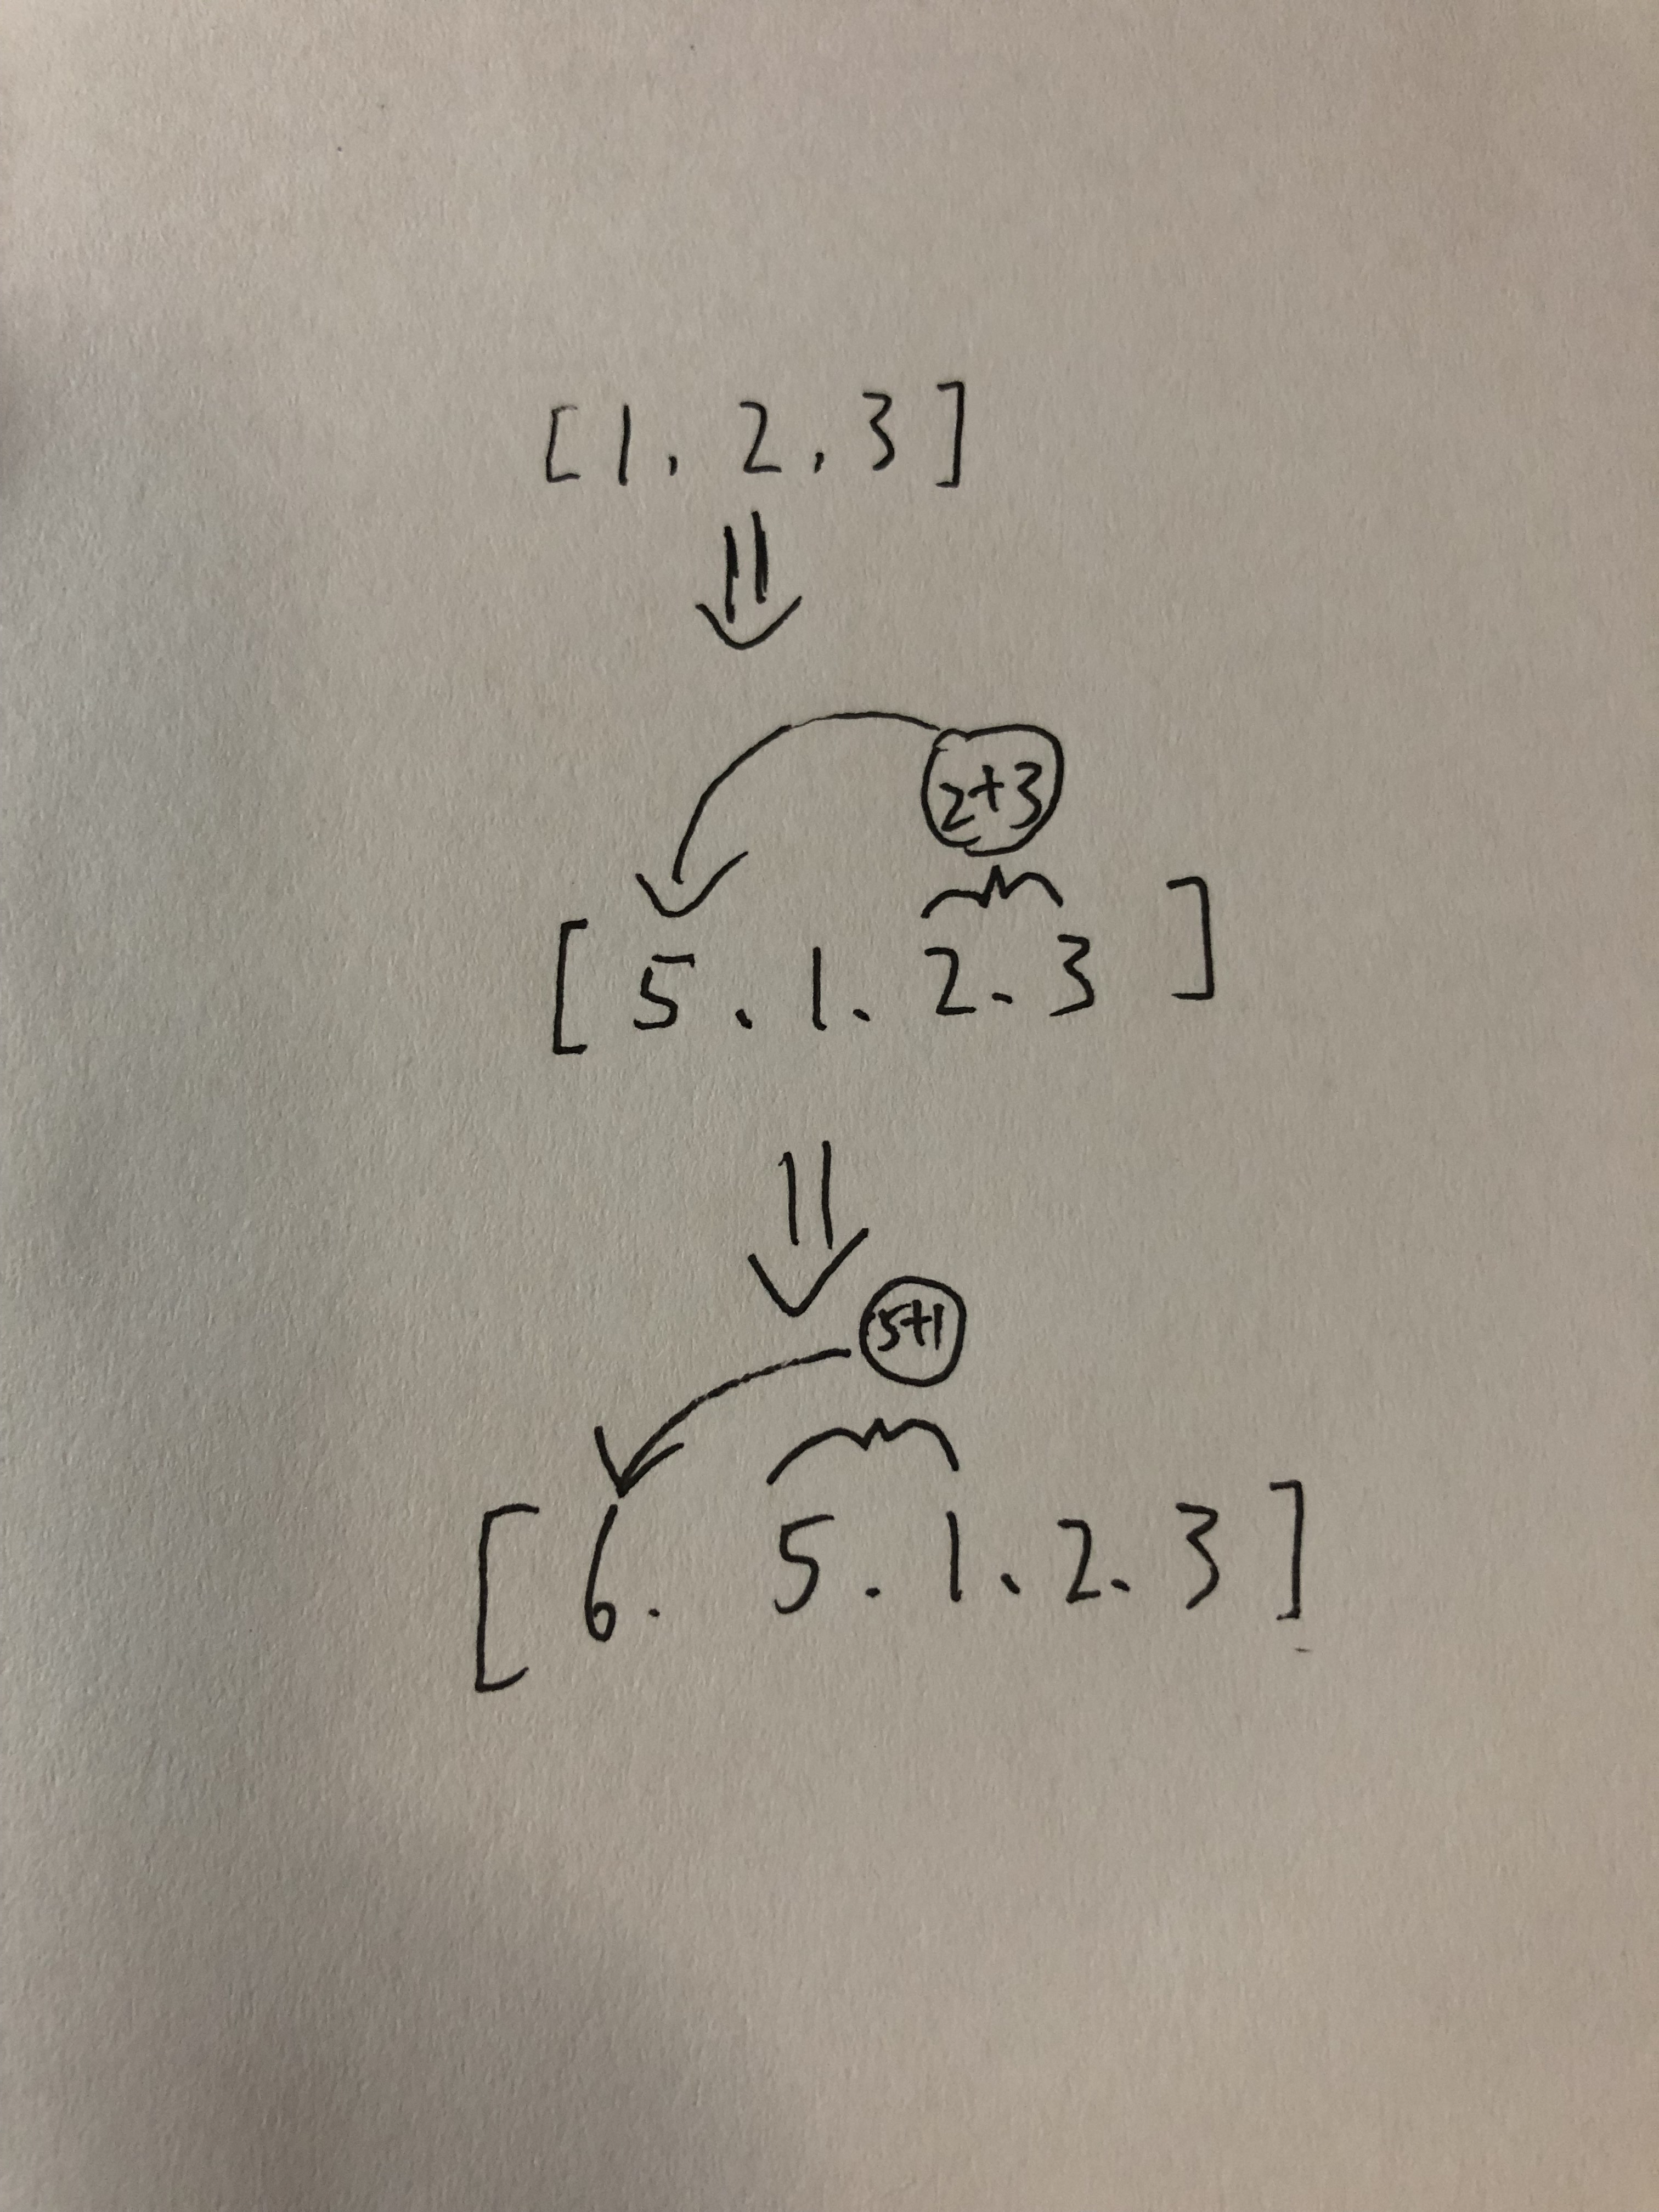 [1, 2, 3]
2+3
[5, 1, 2, 3]
5+1
[6, 5, 1, 2, 3]